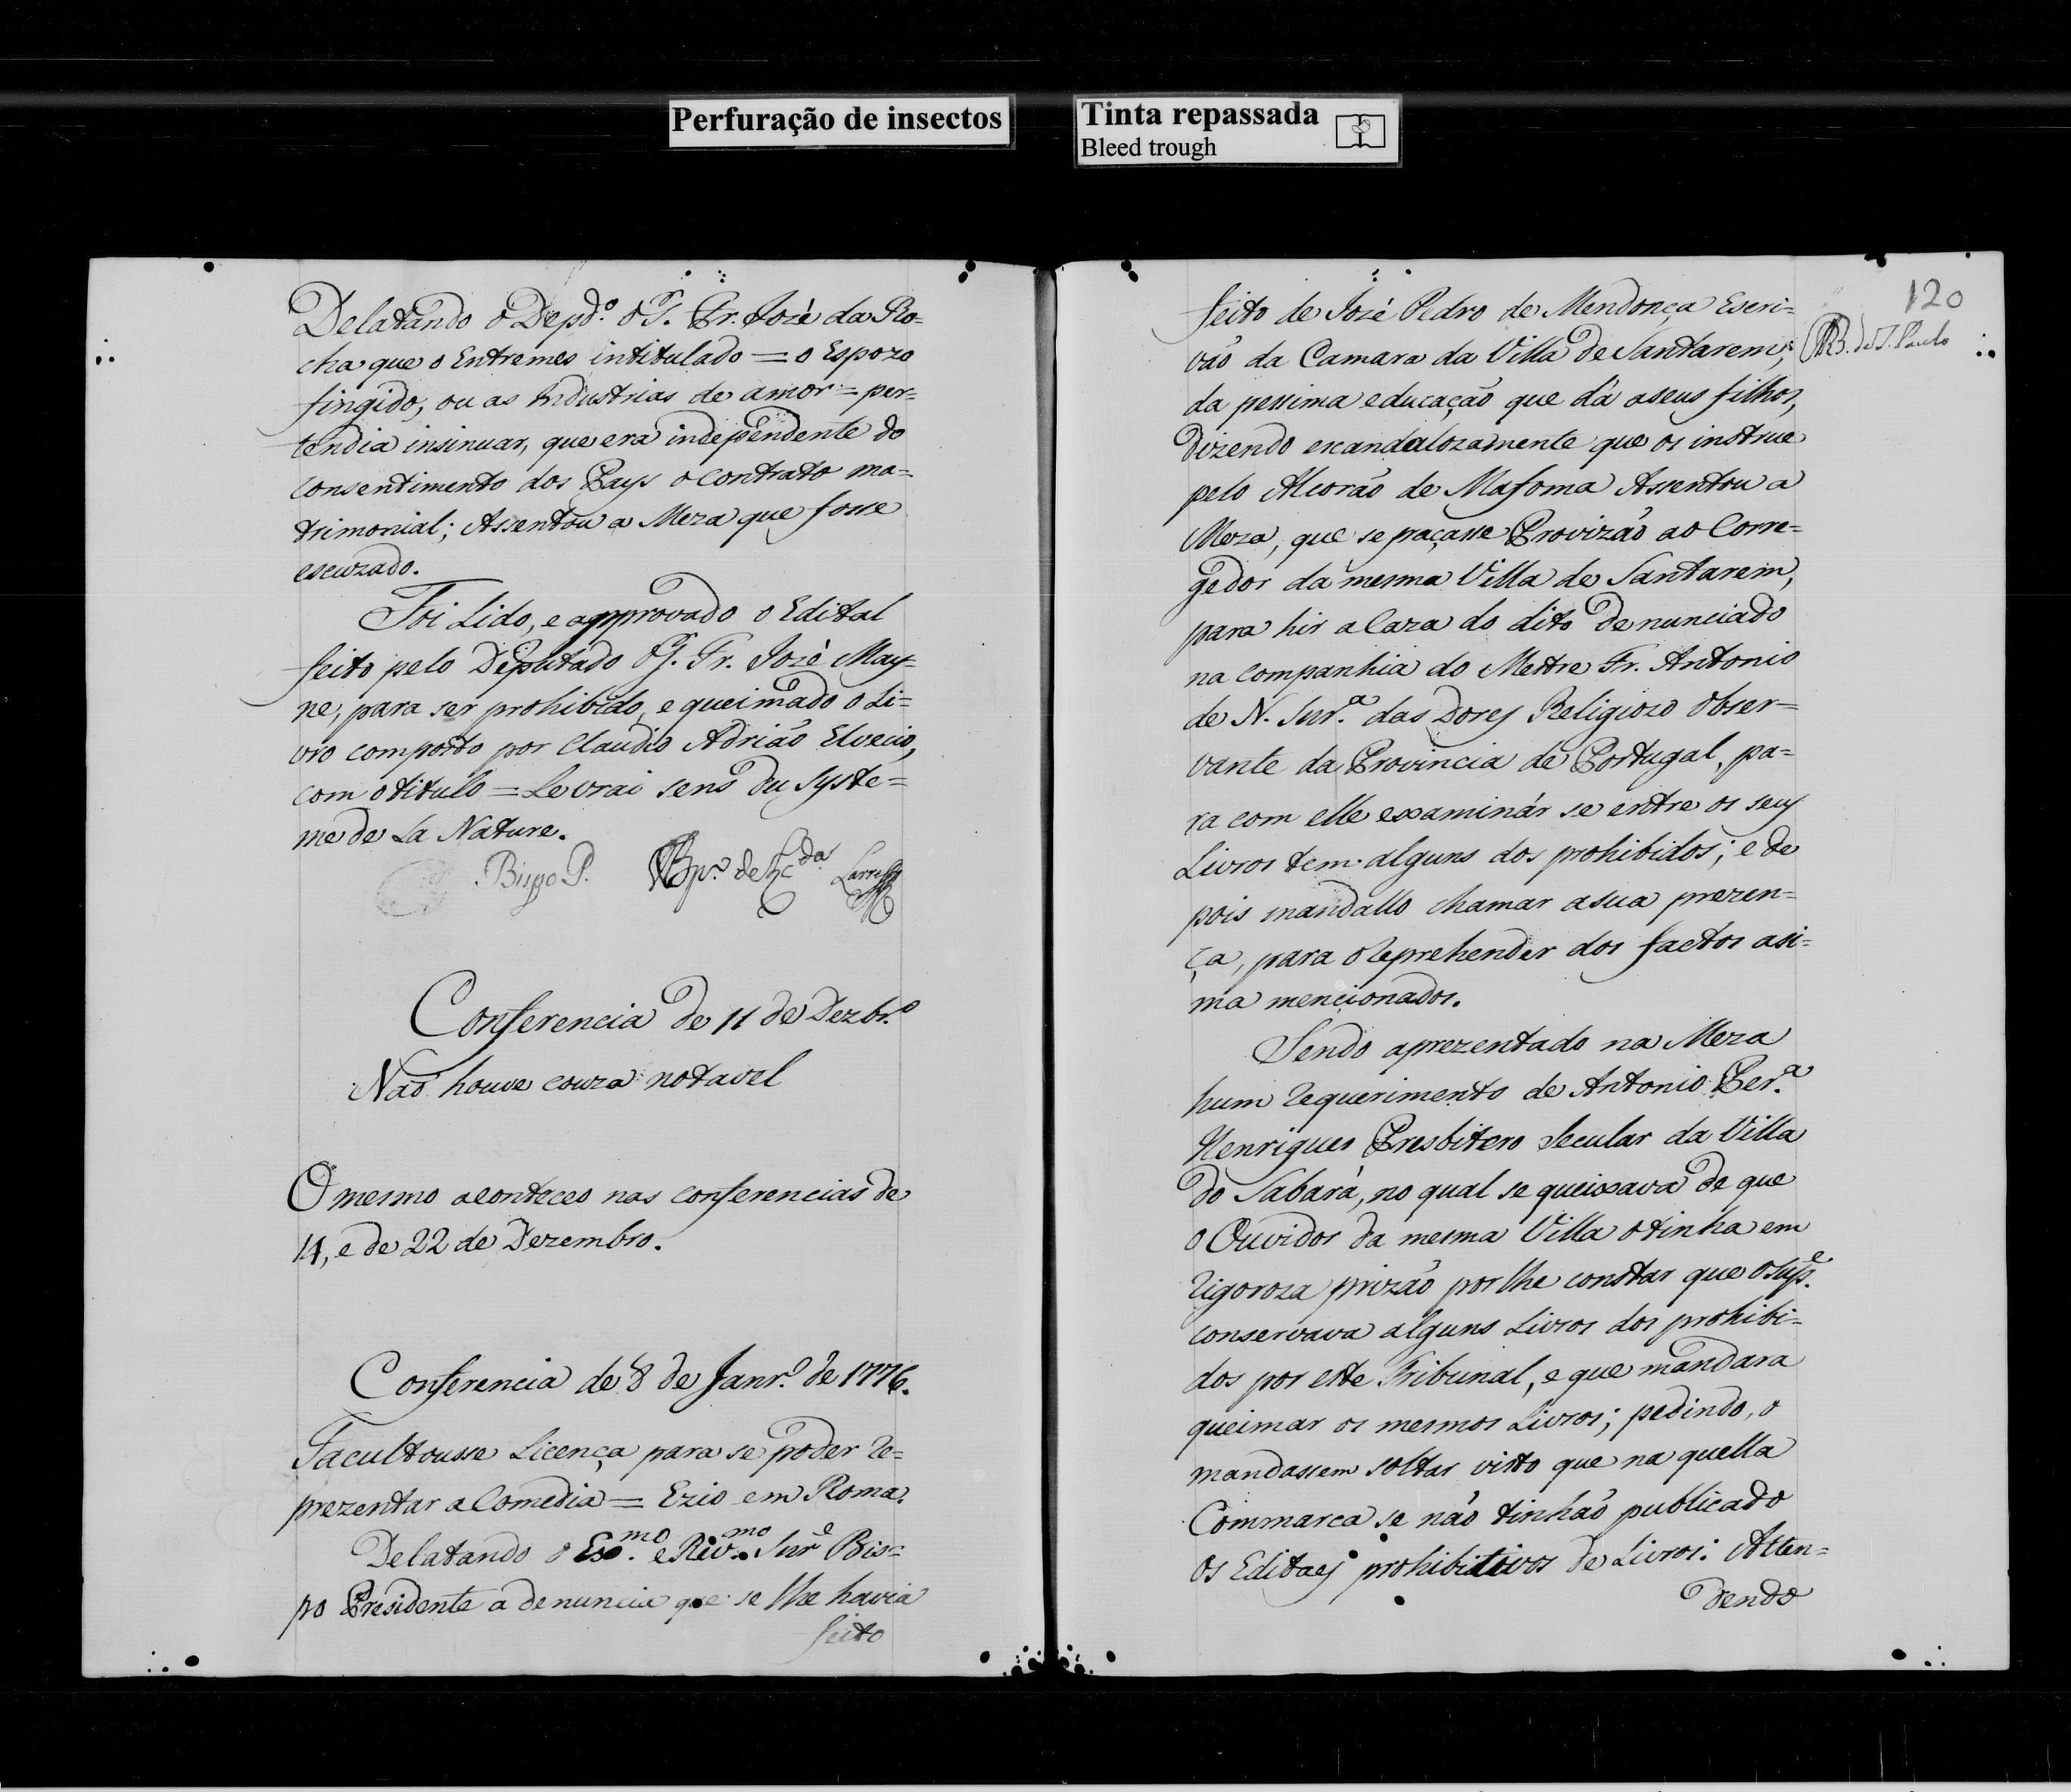 Perfuração de insectos
Tinta repassada
Bleed trough
Delatando o Depd.º o P. Fr. Jozè da Ro-
cha que o Entremes intitulado = o Espozo
fingido, ou as Industrias de amor = per-
tendia insinuar, que era independente do
consentimento dos Pays o contrato ma-
trimonial; Assentou a Meza que fosse
escuzado.
Foi Lido, e approvado o Edital
feito pelo Deputado o P. Fr. Jozè May-
ne, para ser prohibido, e queimado o Li-
vro composto por Claudio Adrião Elvecio,
com o titulo = Le vrai sens du Syste-
me de La Nature.
Bispo P.
Conferencia de 11 de Dezbr.º
Não houve couza notavel
O mesmo aconteceo nas conferencias de
14, e de 22 de Dezembro.
Conferencia de 8 de Janr.º de 1776.
Facultousse Licença para se poder re-
prezentar a Comedia = Ezio em Roma.
Delatando o Exmo. e Revmo. Snr̃ Bis-
po Presidente a denuncia que se lhe havia
feito
120
B. de S. Paulo
feito de Jozè Pedro de Mendonça Escri-
vão da Camara da Villa de Santarem,
da pessima educação que dá a seus filhos,
dizendo escandalozamente que os instrue
pelo Alcorão de Mafoma Assentou a
Meza, que se paçasse Provizão ao Corre-
gedor da mesma Villa de Santarem,
para hir a Caza do dito denunciado
na companhia do Mestre Fr. Antonio
de N. Snr.ª das Dores Religiozo obser-
vante da Provincia de Portugal, pa-
ra com elle examinár se entre os seus
Livros tem alguns dos prohibidos; e de
pois mandallo chamar a sua prezen-
ça, para o reprehender dos factos asi-
ma mencionados.
Sendo aprezentado na Meza
hum requerimento de Antonio Per.ª
Henriques Presbitero Secular da Villa
do Sabará, no qual se queixava de que
o Ouvidor da mesma Villa o tinha em
rigoroza prizão por lhe constar que o Sup.e
conservava alguns Livros dos prohibi-
dos por este Tribunal, e que mandara
queimar os mesmos Livros; pedindo, o
mandassem soltar visto que na quella
Commarca se não tinhão publicado
os Editaes prohibitivos de Livros: Atten-
dendo